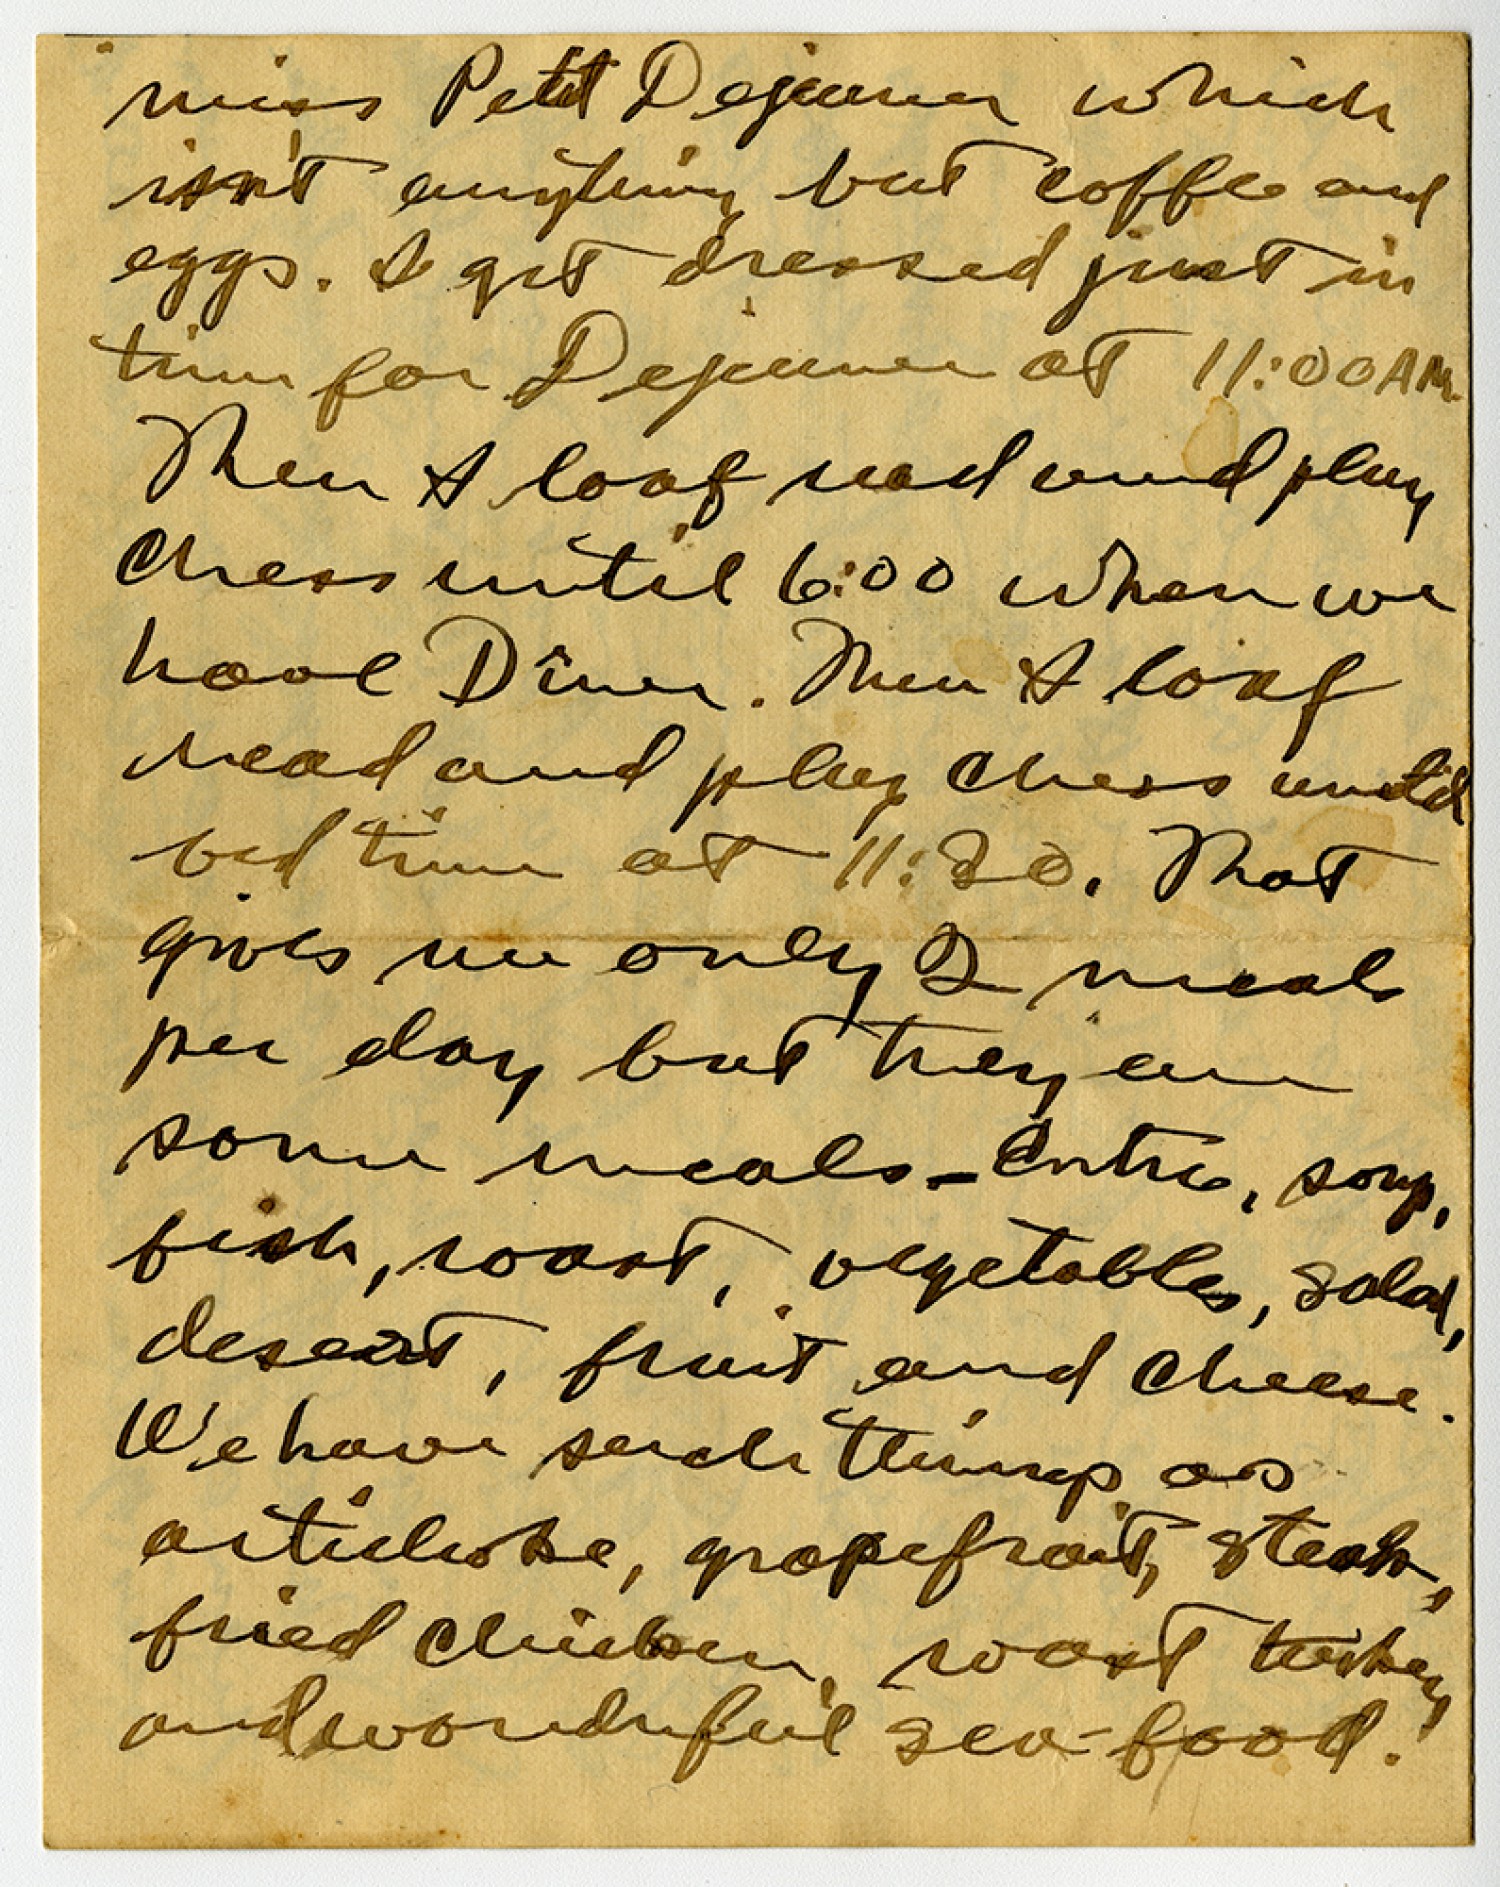 miss Petit Dejeuner which
isn't anything but coffee and
eggs. I get dressed just in
time for Dejeuner at 11:00 AM.
Then I loaf read and play
chess until 6:00 when we
have Dîner. Then I loaf
read and play chess until
bed time at 11:30. That
gives me only 2 meals
per day but they are
some meals - Entree, soup,
fish, roast, vegetables, salad,
desert, fruit and cheese.
We have such things as
artichoke, grapefruit, steak,
fried chicken, roast turkey
and wonderful sea-food.